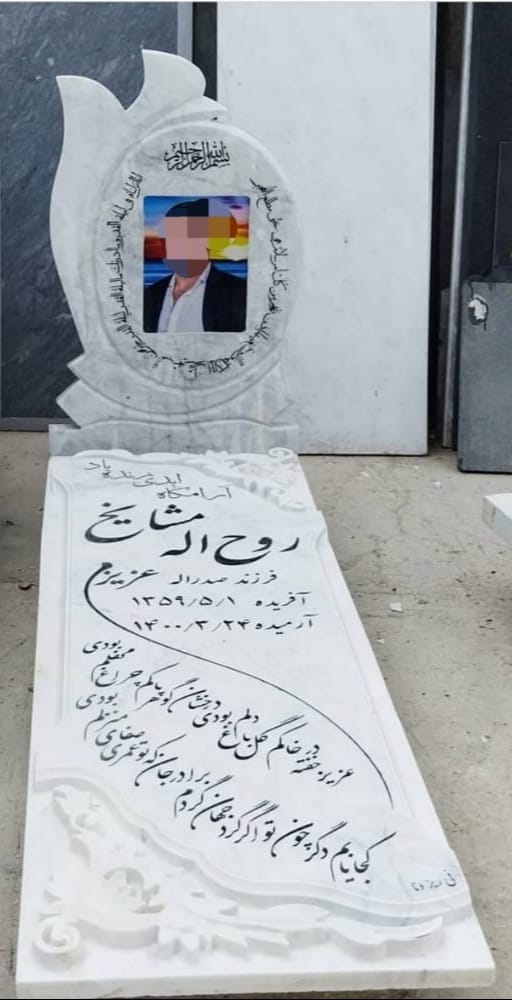 بسم الله الرحمن الرحیم
آرامگاه ابدی زنده یاد
روح اله مشایخ
فرزند صدراله عزیزم
آفریده ۱۳۵۹/۵/۱
آرمیده ۱۴۰۰/۳/۲۴
عزیز خفته در خاکم گل باغ دلم بودی
درخشان گوهر پاکم چراغ محفلم بودی
کجا یابم دگر چون تو اگر گرد جهان گردم
برادر جان که تو عمری صفای منزلم بودی